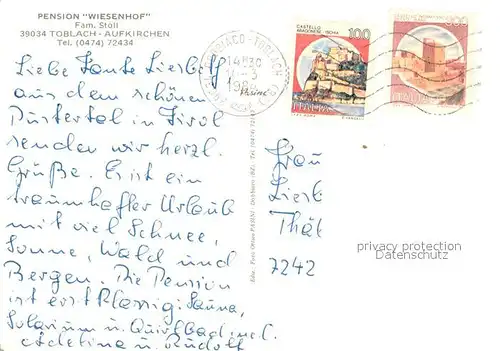 PENSION "WIESENHOF"
Fam. Stoll
39034 TOBLACH - AUFKIRCHEN
Tel. (0474) 72434
Liebe Tante Liesbeth
aus dem schönen
Pustertal in Tirol
senden wir herzl.
Grüße. Es ist ein
traumhafter Urlaub
mit viel Schnee,
Sonne, Wald und
Bergen. Die Pension
ist erstklassig: Sauna,
Solarium u. Quirlbad incl.
Adelina u. Rudolf
DOBBIACO - TOBLACH
CASTELLO
ARAGONESE. ISCHIA
100
ITALIA
Frau
Liesb
Thäl
7242
privacy protection
Datenschutz